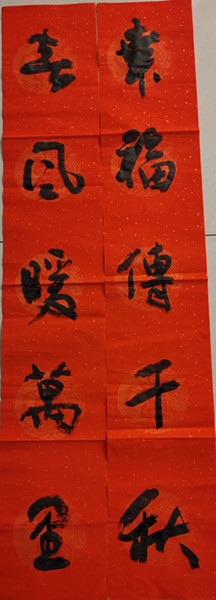 幸福傳千秋
春風暖萬里